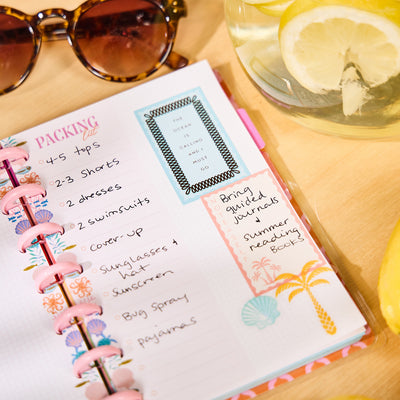 PACKING
list
4-5 tops
2-3 shorts
2 dresses
2 swimsuits
cover-up
sunglasses +
hat
sunscreen
Bug spray
pajamas
THE
OCEAN
IS
CALLING
AND I
MUST
GO
Bring
guided
journals
+
summer
reading
Books